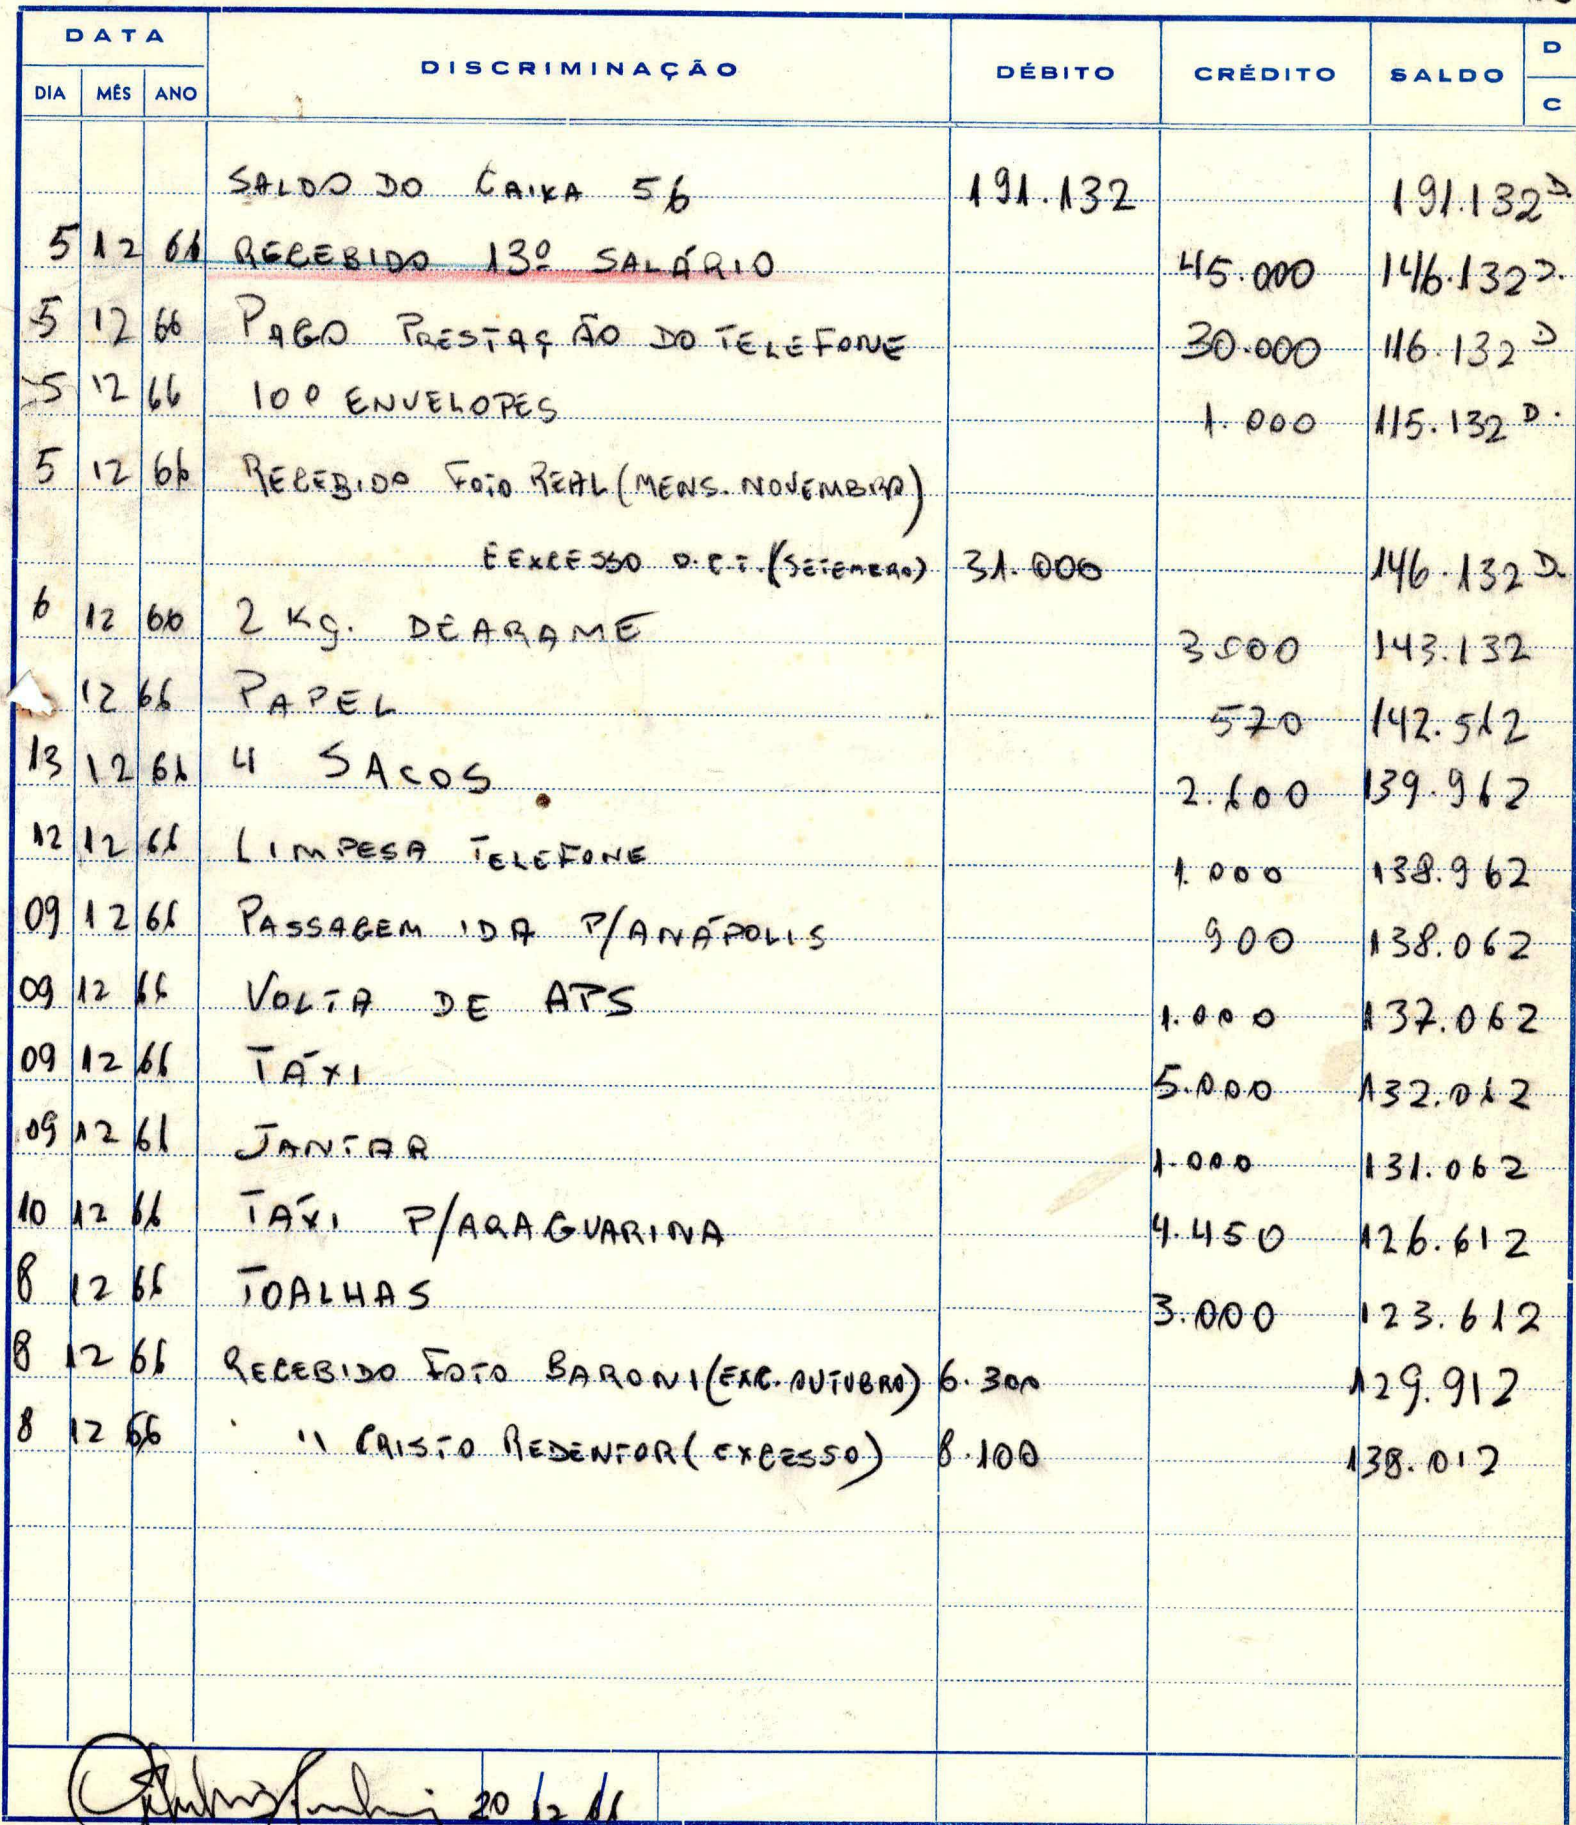 DATA
DISCRIMINAÇÃO DÉBITO CRÉDITO SALDO D
DIA MÊS ANO C
SALDO DO CAIXA 56 191.132 191.132 D.
5 12 66 RECEBIDO 13º SALÁRIO 45.000 146.132 D.
5 12 66 PAGO PRESTAÇÃO DO TELEFONE 30.000 116.132 D
5 12 66 100 ENVELOPES 1.000 115.132 D.
5 12 66 RECEBIDO FOTO REAL (MENS. NOVEMBRO)
E EXCESSO D.C.T. (SETEMBRO) 31.000 146.132 D.
6 12 66 2 Kg. DE ARAME 3000 143.132
12 66 PAPEL 570 142.562
13 12 66 4 SACOS 2.600 139.962
12 12 66 LIMPESA TELEFONE 1.000 138.962
09 12 66 PASSAGEM IDA P/ANÁPOLIS 900 138.062
09 12 66 VOLTA DE APS 1.000 137.062
09 12 66 TÁXI 5.000 132.062
09 12 66 JANTAR 1.000 131.062
10 12 66 TÁXI P/ARAGUARINA 4.450 126.612
8 12 66 TOALHAS 3.000 123.612
8 12 66 RECEBIDO FOTO BARONI (EXC. OUTUBRO) 6.300 129.912
8 12 66 " CRISTO REDENTOR (EXCESSO) 8.100 138.012
20 12 66